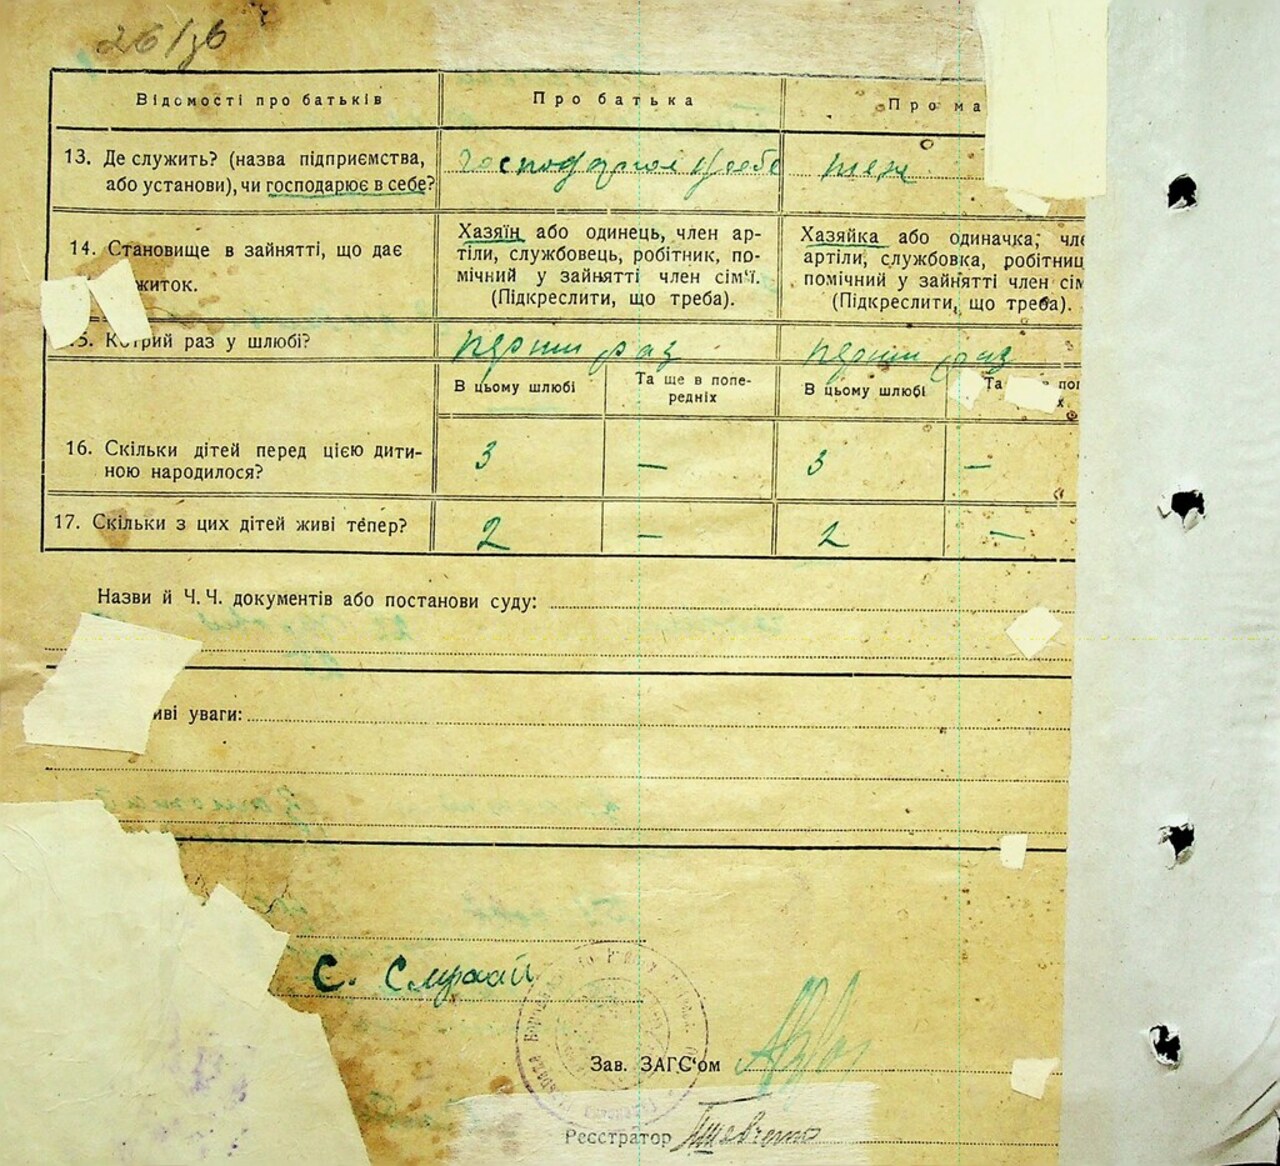 26/36
Відомості про батьків Про батька Про ма
13. Де служить? (назва підприємства,
або установи), чи господарює в себе?
господарює у себе теж
14. Становище в зайнятті, що дає
житок.
Хазяїн або одинець, член ар-
тіли, службовець, робітник, по-
мічний у зайнятті член сім'ї.
(Підкреслити, що треба).
Хазяйка або одиначка, чле
артіли, службовка, робітниц
помічний у зайнятті член сім
(Підкреслити, що треба).
15. Котрий раз у шлюбі? перши раз перши раз
В цьому шлюбі
Та ще в попе-
редніх
В цьому шлюбі
Та в поп
х
16. Скільки дітей перед цією дити-
ною народилося?
3 — 3 —
17. Скільки з цих дітей живі тепер? 2 — 2 —
Назви й Ч. Ч. документів або постанови суду:
иві уваги:
С.
Зав. ЗАГС'ом
Реєстратор Шевченко